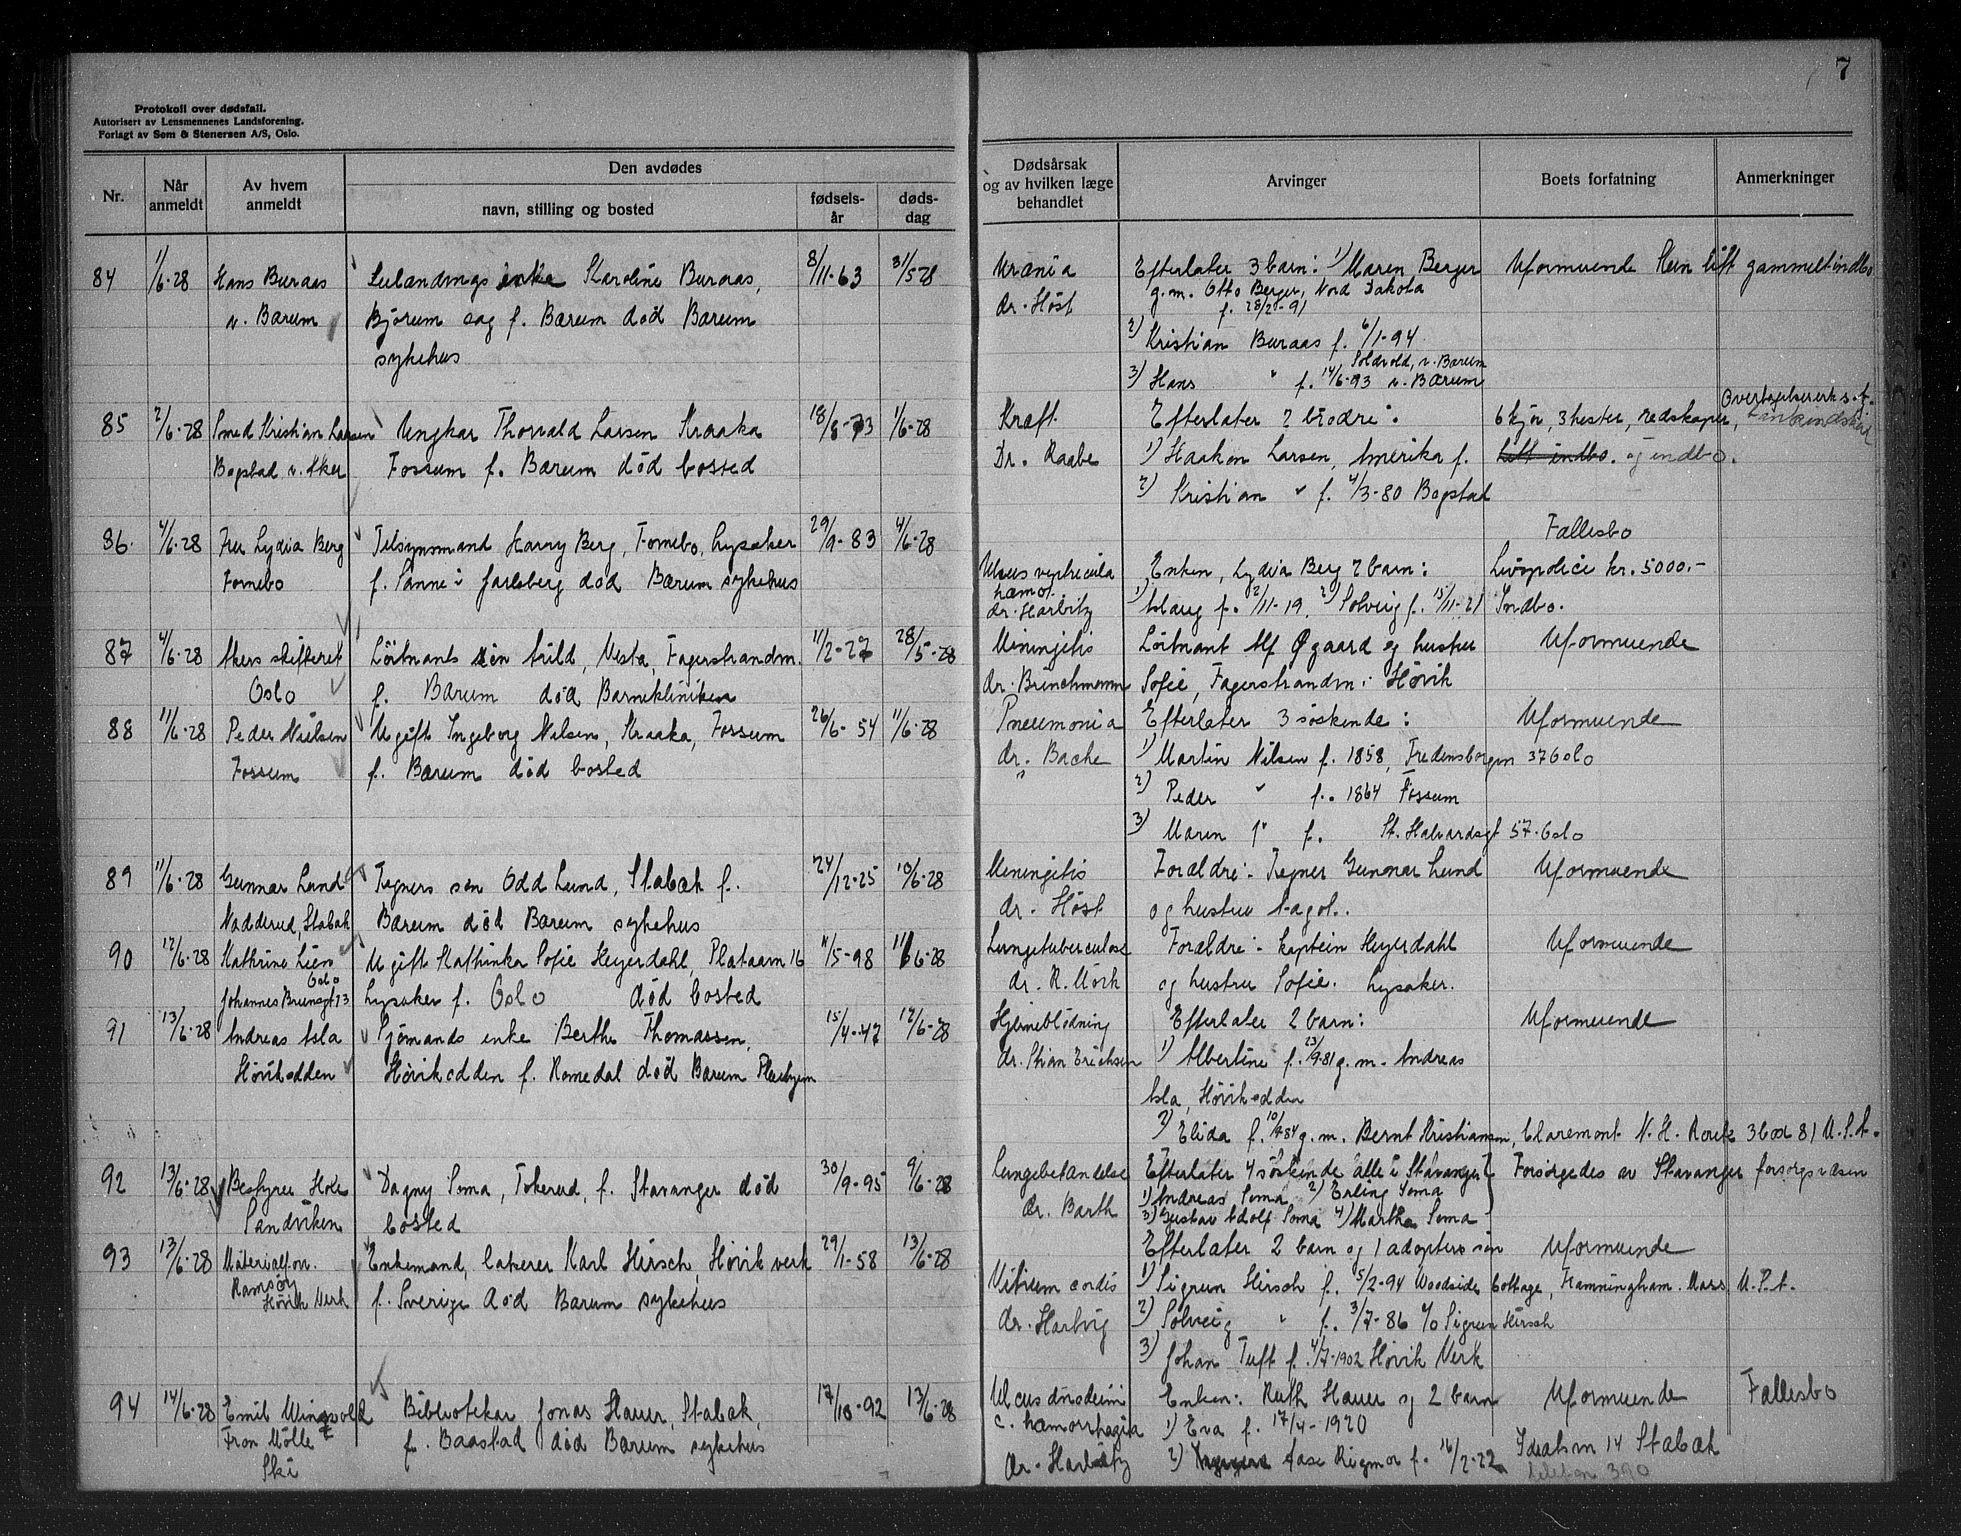 7
Protokoll over dødsfall.
Autorisert av Lensmennenes Landsforening.
Forlagt av Sem & Stenersen A/S, Oslo.
Nr.
Når anmeldt
Av hvem anmeldt
Den avdødes
navn, stilling og bosted
fødsels-år
døds-dag
Dødsårsak og av hvilken læge behandlet
Arvinger
Boets forfatning
Anmerkninger
84 1/6-28 Hans Buraas enke Karoline Buraas, 8/11-63 31/5 28 Uræmia Efterlater 3 barn: 1) Maren Berger Uformuende Kun litt gammelt indbo
v. Bærum Bjørum sag f. Bærum død Bærum dr. Høst g.m. Otto Berger, Nord Dakota
sykehus f. 28/2-91
2) Kristian Buraas f. 6/1-94
Soldvold, v. Bærum
3) Hans " f. 14/6-93 v. Bærum
85 2/6-28 Smed Kristian Larsen Ungkar Thorvald Larsen Kraaka 18/8-73 1/6-28 Kræft Efterlater 2 brødre: 6 kjør, 3 hester, redskaper,
Bogstad v. Aker Fossum f. Bærum død bosted Dr. Raabe 1) Haakon Larsen, Amerika f. litt indbo. og indbo.
2) Kristian " f. 4/3-80 Bogstad
86. 4/6-28 Fru Lydia Berg Tilsynsmand Harry Berg, Fornebo, Lysaker 29/9-83 4/6-28 Fællesbo
Fornebo f. Sanne i Jarlsberg død Bærum sykehus Ulcus Enken, Lydia Berg 2 barn: Livspolice kr. 5000.-
hæmor. dr. Harbitz 1) Aslaug f. 2/11-19, 2) Solveig f. 15/11-21 Indbo.
87 4/6-28 Akers skifteret Løitnants søn Arild, Vesta, Fagerstrandm. 11/2-27 28/5-28 Meningitis Løitnant Alf Øgaard og hustru Uformuende
Oslo f. Bærum død Barneklinikken dr. Brinchmann Sofie, Fagerstrandm. Høvik
88 11/6-28 Peder Nielsen Ugift Ingeborg Nilsen, Kraaka, Fossum 26/6-54 11/6-28 Pneumonia Efterlater 3 søskende: Uformuende
Fossum f. Bærum død bosted dr. Bache 1) Martin Nilsen f. 1858, Fredensborgvn 37 Oslo
2) Peder " f. 1864 Fossum
3) Maren " f. St. Halvardsgt 57. Oslo
89 11/6-28 Gunnar Lund Tegners søn Odd Lund, Stabæk f. 24/12-25 10/6-28 Meningitis Forældre: Tegner Gunnar Lund Uformuende
Nadderud, Stabæk Bærum død Bærum sykehus dr. Høst og hustru Aagot.
90 12/6-28 Kathrine Lien Ugift Kathinka Sofie Heyerdahl, Platåvn 16 11/5-98 11/6 6-28 Lungetuberculose Forældre: kaptein Heyerdahl Uformuende
Oslo
Johannes Brunsgt 13 Lysaker f. Oslo død bosted dr. R. Mørk og hustru Sofie. Lysaker.
91 13/6-28 Andreas Asla Sjømands enke Berthe Thomassen, 15/4-47 12/6-28 Hjerneblødning Efterlater 2 barn: Uformuende
Høvikodden Høvikodden f. Romedal død Bærum Pleiehjem dr. Stian Erichsen 1) Albertine f. 23/9-81 g.m. Andreas
Asla, Høvikodden
2) Elida f. 10/9-84 g.m. Bernt Kristiansen, Claremont N.H. Route 3 box 81 U.S.A.
92 13/6-28 Bestyrer Holm Dagny Soma, Tokerud, f. Stavanger død 30/9-95 9/6-28 Lungebetændelse Efterlater 4 søskende alle i Stavanger Forsørgedes av Stavanger forsorgsvæsen
Sandviken bosted dr. Barth 1) Andreas Soma 2) Erling Soma
3) Gustav Adolf Soma 4) Martha Soma
93 13/6-28 Materialforv. Enkemand, lakerer Karl Hirsch, Høvik verk 29/1-58 13/6-28 Efterlater 2 barn og 1 adoptivsøn Uformuende
Ramsøy Høvik Verk f. Sverige død Bærum sykehus Vitium cordis 1) Sigrun Hirsch f. 5/2-94 Woodside Cottage, Framningham. Mass U.S.A.
dr. Hartvig 2) Solveig " f. 3/7-86 c/o Sigrun Hirsch
3) Johan Tuft f. 4/7-1902 Høvik Verk
94 14/6-28 Emil Wingvold Bibliotekar Jonas Hauer, Stabæk, 17/10-92 13/6-28 Ulcus duodeni Enken: Ruth Hauer og 2 barn Uformuende Fællesbo
Fron Mølle f. Baastad død Bærum sykehus c. hæmorrhagia 1) Eva f. 17/4-1920
Ski dr. Harbitz 2) Aase Rigmor f. 16/2-22 14 Stabæk
telefon 390